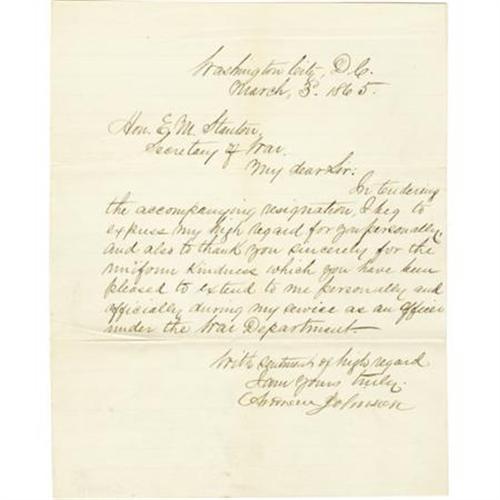 Washington City, D.C.
March, 3d. 1865.
Hon. E. M. Stanton,
Secretary of War.
My dear Sir:
In tendering
the accompanying resignation, I beg to
express my high regard for you personally,
and also to thank you sincerely for the
uniform kindness which you have been
pleased to extend to me personally and
officially during my service as an officer
under the War Department.
With sentiments of high regard
I am Yours truly.
Andrew Johnson